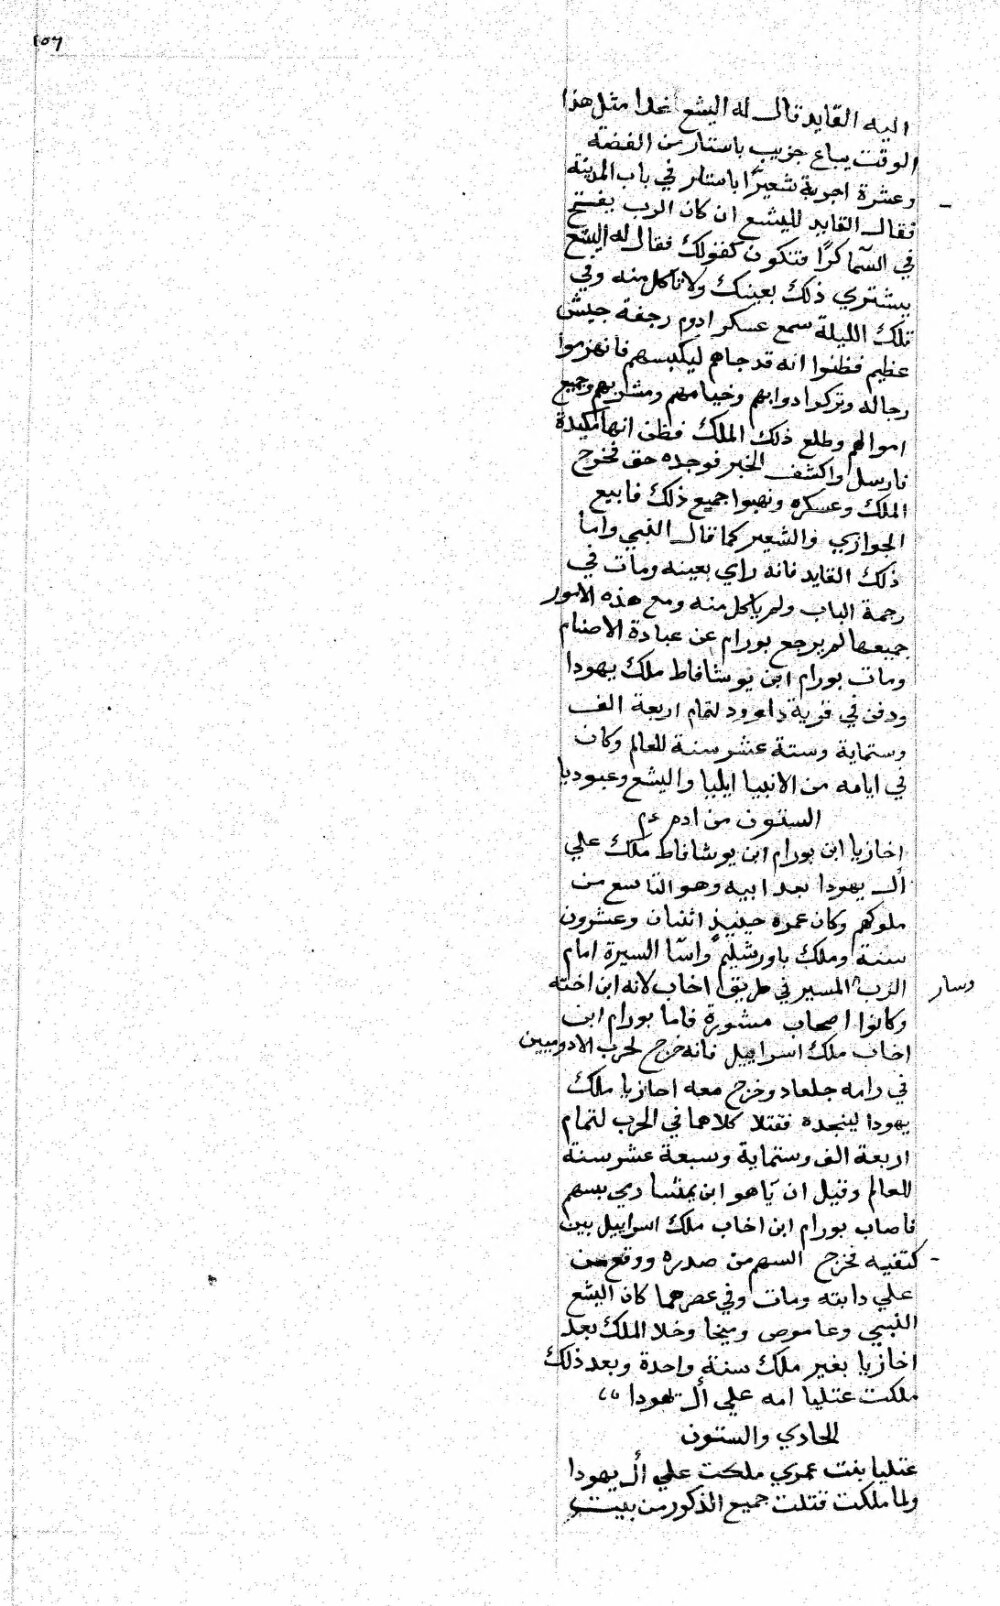 ١٥٦
اليه القايد قال له اليشع غدا مثل هذا
الوقت يباع جريب باستار من الفضة
وعشرة اجربة شعيرًا باستار في باب المدينة
فقال القايد لليشع ان كان الرب يفتح
في السما كرًا فتكون كقولك فقال له اليشع
يشتري ذلك بعينك ولا تاكل منه وفي
تلك الليلة سمع عسكر ادوم رجفة جيش
عظيم فظنوا انه قد جاهم ليكبسهم فانهزموا
رجاله وتركوا دوابهم وخيامهم ومشاربهم وجميع
اموالهم وطلع ذلك الملك فظن انها مكيدة
فارسل واكشف الخبر فوجده حق فخرج
الملك وعسكره ونهبوا جميع ذلك فابيع
الجوازي والشعير كما قال النبي واما
ذلك القايد فانه راي بعينه ومات في
رجمة الباب ولم ياكل منه ومع هذه الامور
جميعها لم يرجع يورام عن عبادة الاصنام
ومات يورام ابن يوشافاط ملك يهودا
ودفن في قرية داوود لتمام اربعة الف
وستماية وستة عشر سنة للعالم وكان
في ايامه من الانبيا ايليا واليشع وعبوديا
الستون من ادم عم
اخازيا ابن يورام ابن يوشافاط ملك علي
ال يهودا بعد ابيه وهو التاسع من
ملوكهم وكان عمره حينيذٍ اثنان وعشرون
سنة وملك باورشليم واسا السيرة امام
الرب المسير في طريق اخاب لانه ابن اخته
وسار
وكانوا اصحاب مشورة فاما يورام ابن
اخاب ملك اسراييل فانه خرج لحرب الادوميين
في رامه جلعاد وخرج معه احازيا ملك
يهودا لينجده فقتلا كلاهما في الحرب لتمام
اربعة الف وستماية وسبعة عشر سنة
للعالم وقيل ان ياهو ابن يمشا رمي بسهم
فاصاب يورام ابن اخاب ملك اسراييل بين
كتفيه فخرج السهم من صدره ووقع من
علي دابته ومات وفي عصرهما كان اليشع
النبي وعاموص وميخا وخلا الملك بعد
اخازيا بغير ملك سنة واحدة وبعد ذلك
ملكت عتليا امه علي ال يهودا
الحادي والستون
عتليا بنت عمري ملكت علي ال يهودا
ولما ملكت قتلت جميع الذكور من بيت